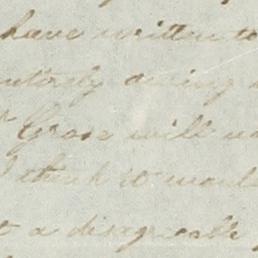 have written to
entirely owing
Grose will
I think it would
a disagreeable